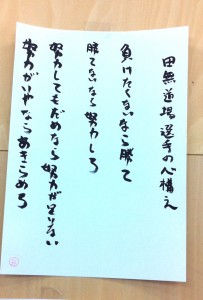 田無道場選手の心構え
負けたくないなら勝て
勝てないなら努力しろ
努力してもだめなら努力が足りない
努力がいやならあきらめろ